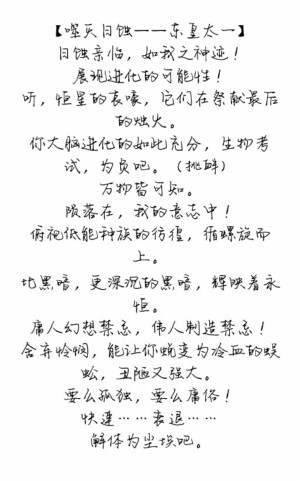 【噬灭日蚀——东皇太一】
日蚀亲临，如我之神迹！
展现进化的可能性！
听，恒星的哀嚎，它们在祭献最后
的烛火。
你大脑进化的如此充分，生物考
试，为负吧。（挑衅）
万物皆可知。
陨落在，我的意志中！
俯视低能种族的彷徨，循螺旋而
上。
比黑暗，更深沉的黑暗，辉映着永
恒。
庸人幻想禁忌，伟人制造禁忌！
舍弃怜悯，能让你蜕变为冷血的蜈
蚣，丑陋又强大。
要么孤独，要么庸俗！
快速……衰退……
解体为尘埃吧。